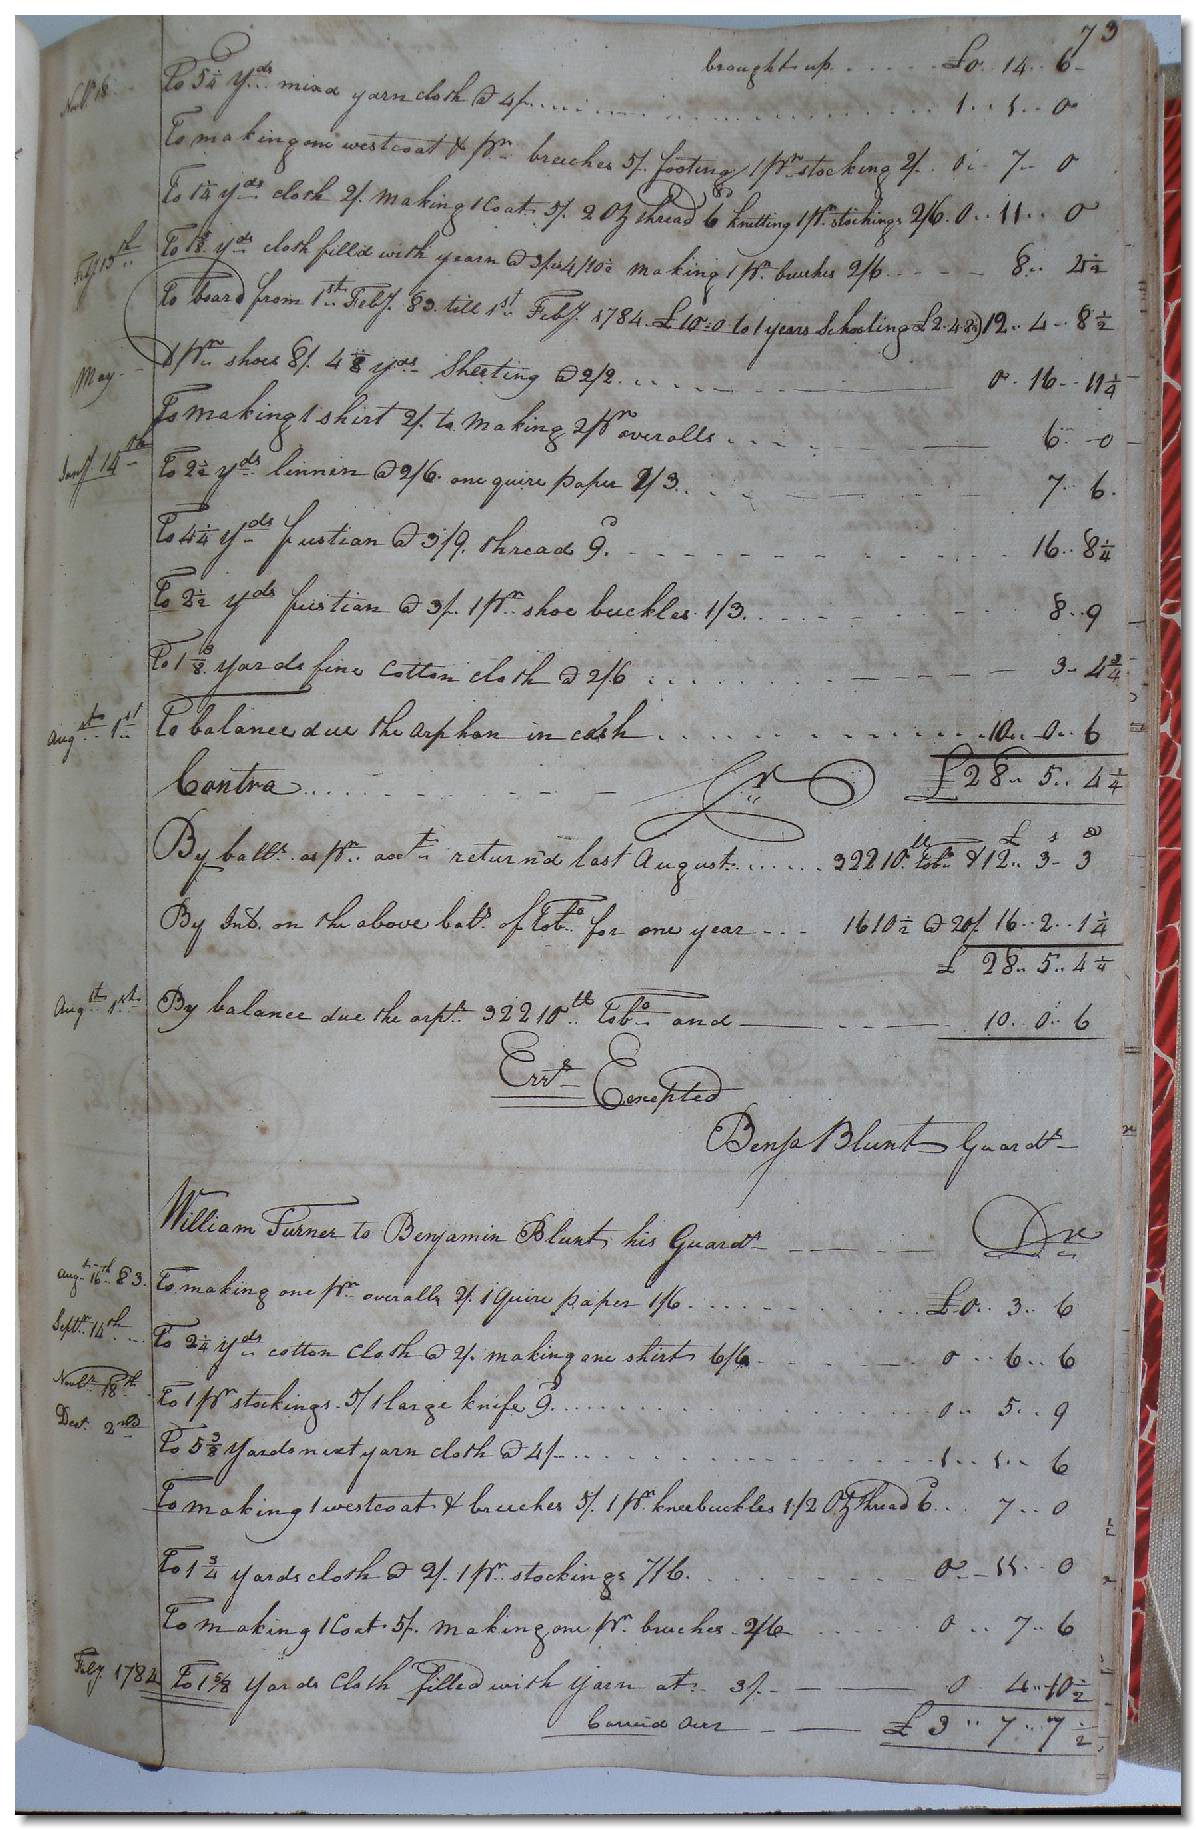 73
brought up £0 14 6
Novr 18 To 5 1/4 yds mixd yarn cloth @ 4/ 1 1 0
To making one westcoat & pr breeches 5/ footing 1 pr stocking 2/ 0 7 0
To 1 1/4 yds cloth 2/. making 1 Coat 5/. 2 Oz thread 6d knitting 1 pr stockings 2/6. 0 11 0
Feby 15th To yds cloth filld with yearn @ 3/ is 4/10 1/2 making 1 pr breches 2/6 8 4 1/2
To board from 1st Feby 83 till 1st Feby 1784. £10=0 to 1 years Schooling £2.4.8 1/2 12 4 8 1/2
May 1 pr shoes 8/. 4 1/8 yds Sheeting @ 2/2 0 16 11 1/4
To making 1 shirt 2/. to making 2 pr overalls 6 0
14th To 2 1/2 yds linnen @ 2/6. one quire paper 1/3 7 6
To 4 1/4 yds fustian @ 3/9. thread 9d 16 8 1/4
To 2 1/2 yds fustian @ 3/. 1 pr shoe buckles 1/3 8 9
To 1 3/8 yards fine Cotton cloth @ 2/6 3 4 3/4
Augst 1st To balance due the orphan in cash 10 0 6
Contra Cr £28 5 4 1/4
£ s d
By balls as pr acct returnd last August 32210 lb Tobo & 12 3 3
By Int. on the above bal. of Tobo for one year 1610 1/2 @ 20/ 16 2 1 1/4
£ 28 5 4 1/4
Augst 1st By balance due the orpn 32210 lb Tobo and 10 0 6
Errs Excepted
Benja Blunt Guardn
William Turner to Benjamin Blunt his Guardn Dr
Augt 16th 83. To making one pr overalls 2/. 1 Quire paper 1/6 £0 3 6
Septr 14th To 2 1/4 yds cotton cloth @ 2/. making one shirt 0 6 6
Novr 18th To 1 pr stockings 5/ 1 large knife 9d 0 5 9
Decr 2nd To 5 3/8 yards mixt yarn cloth @ 4/ 1 1 6
To making 1 westcoat & breeches 5/. 1 pr kneebuckles 1/ 2 Oz thread 6d 7 0
To 1 3/4 yards cloth @ 2/. 1 pr stockings 7/6 0 11 0
To making 1 Coat 5/. making one pr. breeches 2/6 0 7 6
Feby 1784 To 1 5/8 yards Cloth filled with yarn at 3/ 0 4 10 1/2
Carried over £ 3 7 7 1/2